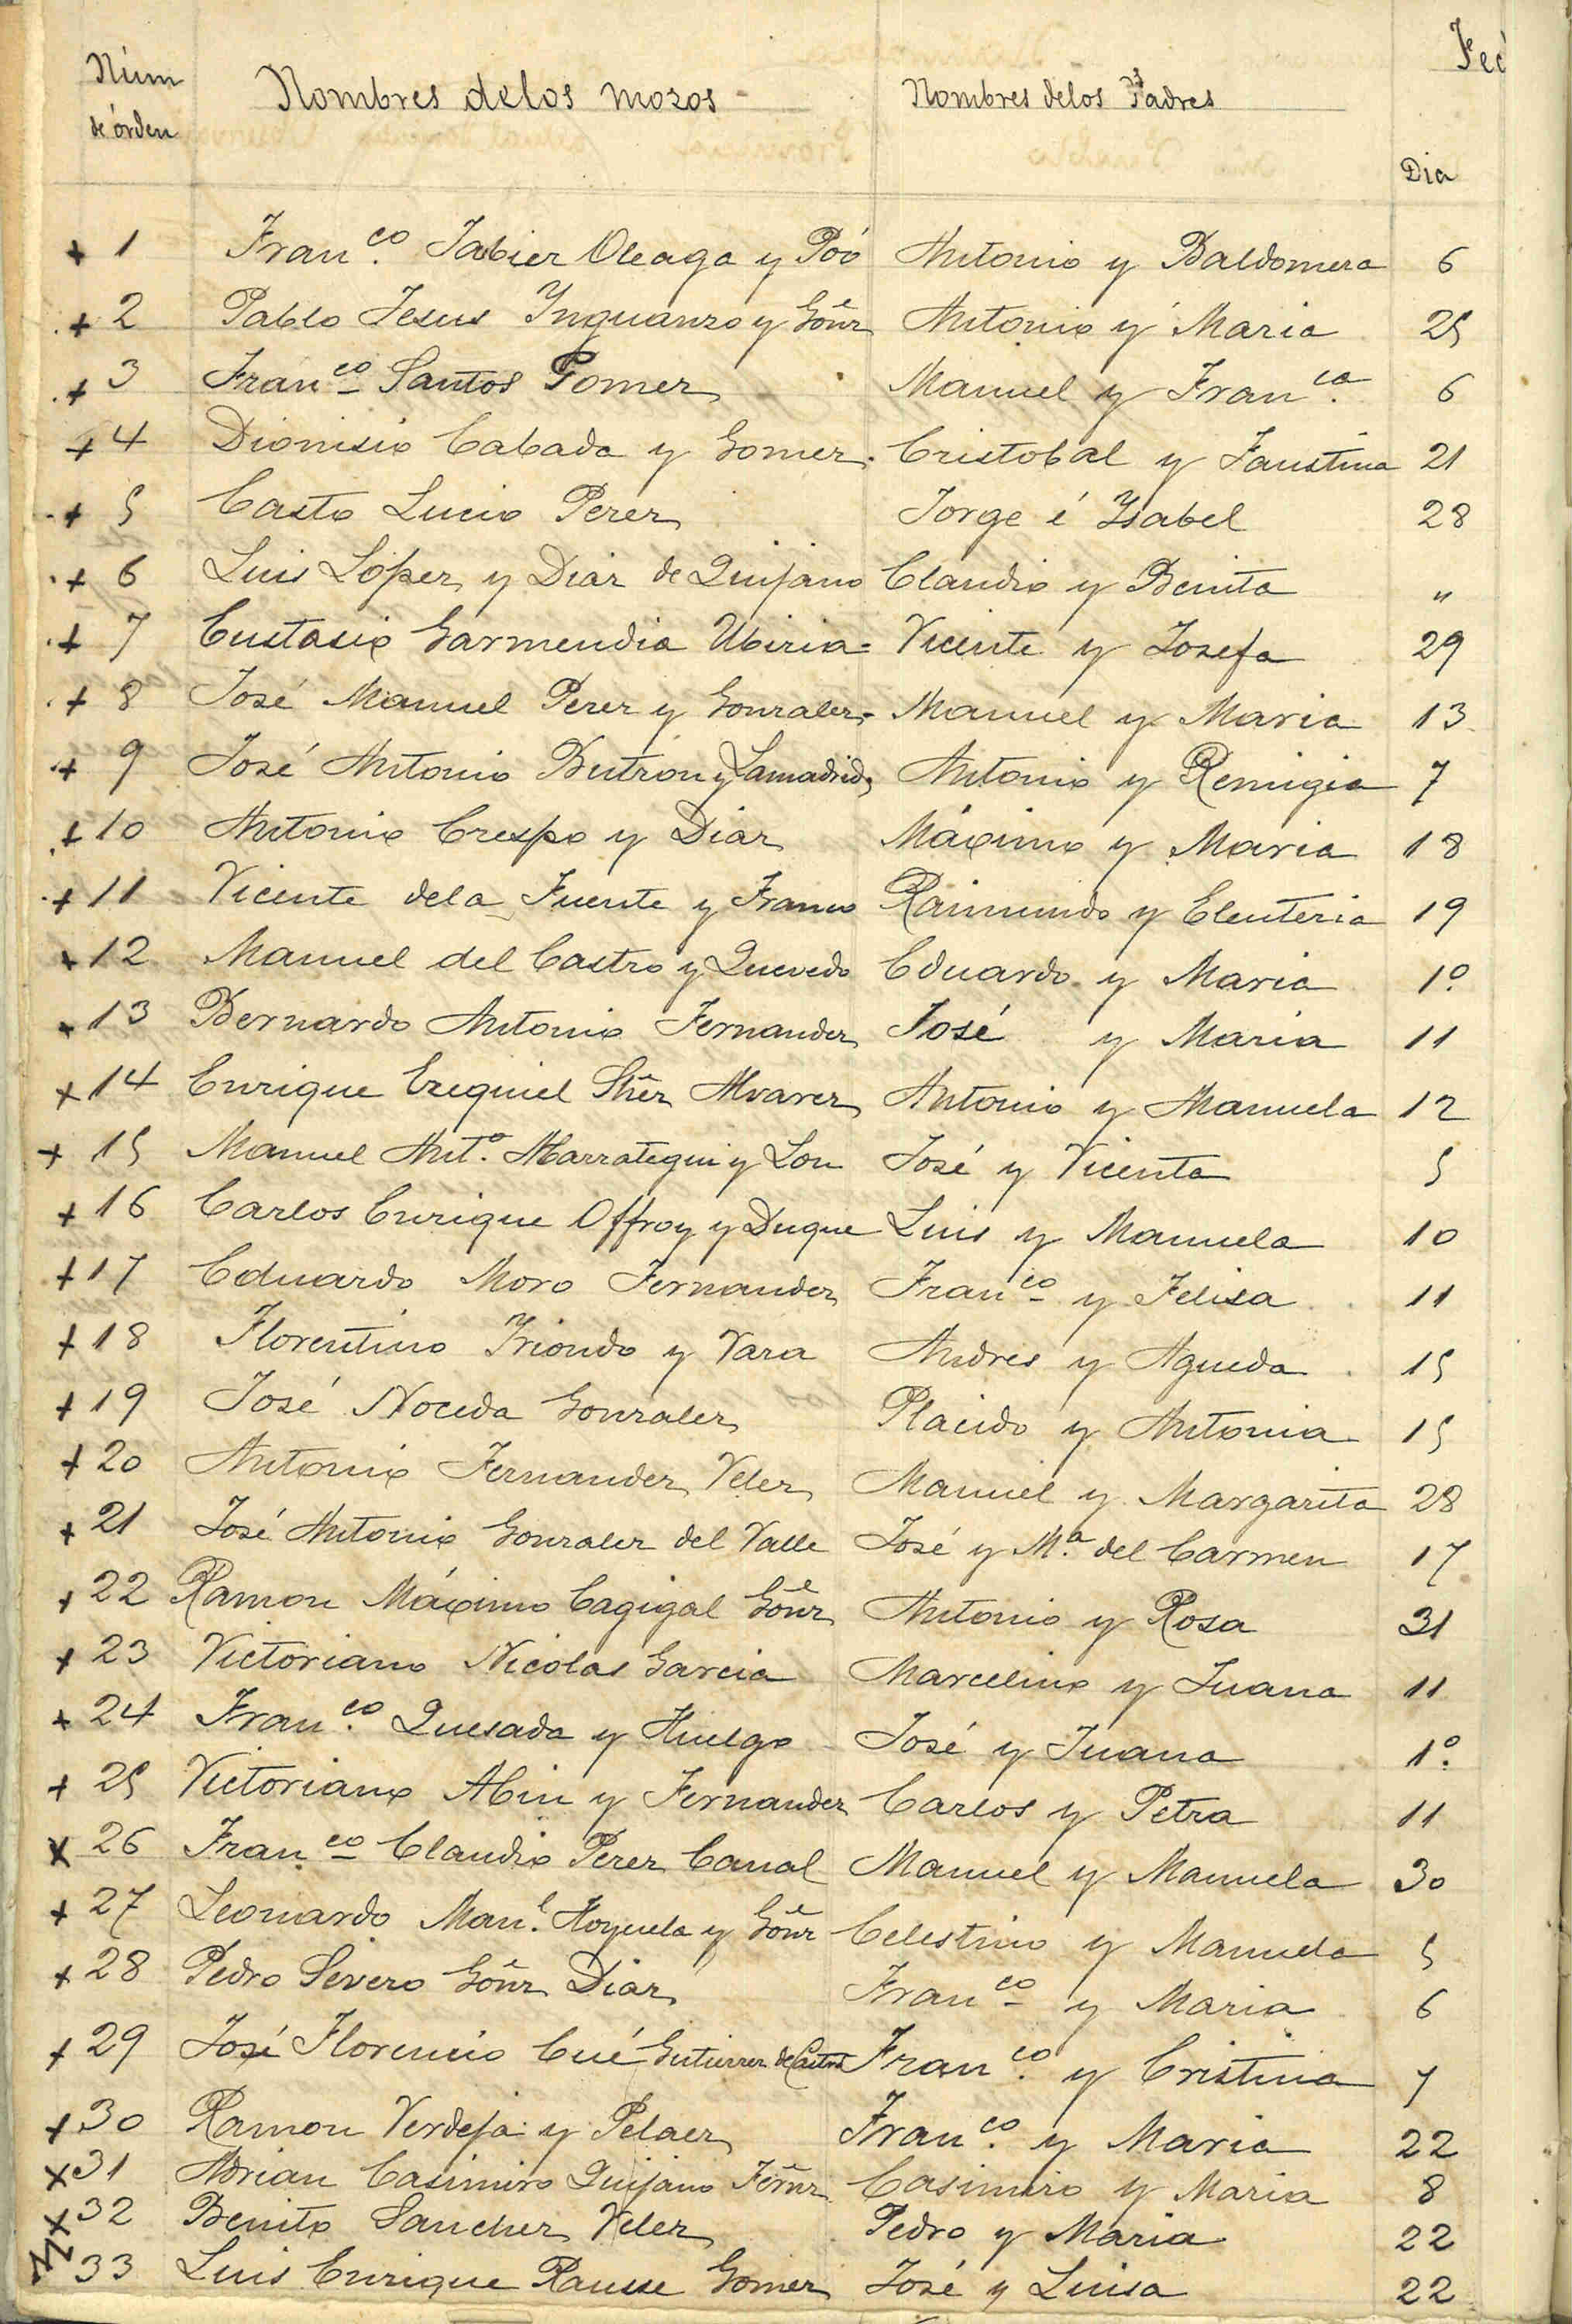 Núm de órden Nombres delos mozos Nombres delos Padres Fec
Dia
+ 1 Fran.co Jabier Oleaga y Póo Antonio y Baldomera 6
+ 2 Pablo Jesus Ynguanzo y Gonz Antonio y Maria 25
+ 3 Fran.co Santos Gomez Manuel y Fran.ca 6
+ 4 Dionisio Cabada y Gomez. Cristobal y Faustina 21
+ 5 Casto Lucio Perez Jorge é Ysabel 28
+ 6 Luis López y Diaz de Quijano Claudio y Benita "
+ 7 Eustasio Garmendia Ubiria= Vicente y Josefa 29
+ 8 José Manuel Perez y Gonzalez= Manuel y Maria 13
+ 9 José Antonio Butron y Lamadrid= Antonio y Remigia 7
+ 10 Antonio Crespo y Diaz Máximo y Maria 18
+ 11 Vicente dela Fuente y Franco Raimundo y Eleuteria 19
+ 12 Manuel del Castro y Quevedo Eduardo y Maria 1º
+ 13 Bernardo Antonio Fernandez José y Maria 11
+ 14 Enrique Ezequiel Shez Alvarez Antonio y Manuela 12
+ 15 Manuel Ant.o Marrategui y Lon José y Vicenta 5
+ 16 Carlos Enrique Offroy y Duque Luis y Manuela 10
+ 17 Eduardo Moro Fernandez Fran.co y Felisa 11
+ 18 Florentino Yriondo y Vara Andres y Agueda 15
+ 19 José Noceda Gonzalez Placido y Antonia 15
+ 20 Antonio Fernandez Velez Manuel y Margarita 28
+ 21 José Antonio Gonzalez del Valle José y M.a del Carmen 17
+ 22 Ramon Máximo Cagigal Gonz Antonio y Rosa 31
+ 23 Victoriano Nicolas Garcia Marcelino y Juana 11
+ 24 Fran.co Quesada y Huelga José y Juana 1º
+ 25 Victoriano Abin y Fernandez Carlos y Petra 11
x 26 Fran.co Claudio Perez Canal Manuel y Manuela 30
+ 27 Leonardo Man.l Hoyuela y Gonz Celestino y Manuela 5
+ 28 Pedro Severo Gonz Diaz Fran.co y Maria 6
+ 29 José Florencio Cué Gutierrez de Castro Fran.co y Cristina 7
+ 30 Ramon Verdeja y Pelaez Fran.co y Maria 22
x 31 Adrian Casimiro Quijano Fernz Casimiro y Maria 8
x 32 Benito Sanchez Velez Pedro y Maria 22
33 Luis Enrique Gomez José y Luisa 22